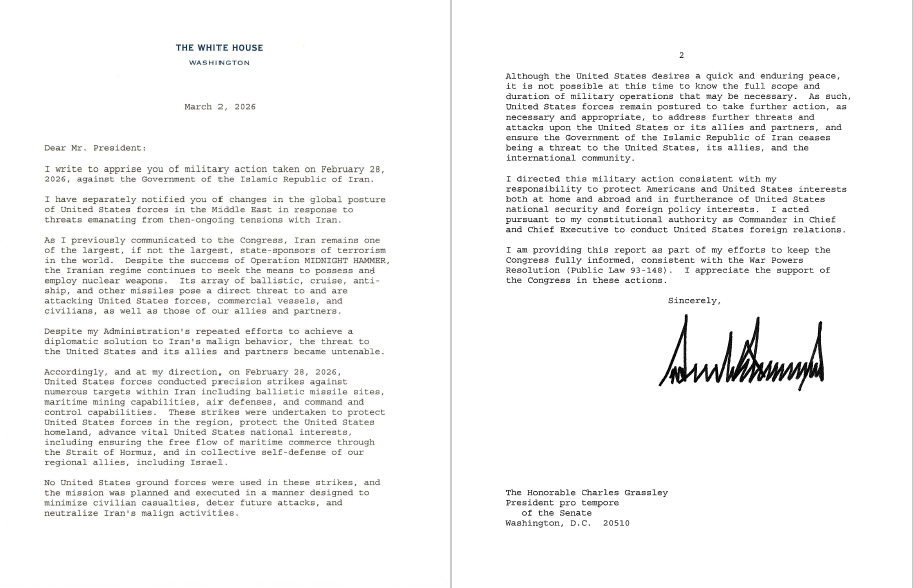 THE WHITE HOUSE
WASHINGTON
March 2, 2026
Dear Mr. President:
I write to apprise you of military action taken on February 28,
2026, against the Government of the Islamic Republic of Iran.
I have separately notified you of changes in the global posture
of United States forces in the Middle East in response to
threats emanating from then-ongoing tensions with Iran.
As I previously communicated to the Congress, Iran remains one
of the largest, if not the largest, state-sponsors of terrorism
in the world.  Despite the success of Operation MIDNIGHT HAMMER,
the Iranian regime continues to seek the means to possess and
employ nuclear weapons.  Its array of ballistic, cruise, anti-
ship, and other missiles pose a direct threat to and are
attacking United States forces, commercial vessels, and
civilians, as well as those of our allies and partners.
Despite my Administration's repeated efforts to achieve a
diplomatic solution to Iran's malign behavior, the threat to
the United States and its allies and partners became untenable.
Accordingly, and at my direction, on February 28, 2026,
United States forces conducted precision strikes against
numerous targets within Iran including ballistic missile sites,
maritime mining capabilities, air defenses, and command and
control capabilities.  These strikes were undertaken to protect
United States forces in the region, protect the United States
homeland, advance vital United States national interests,
including ensuring the free flow of maritime commerce through
the Strait of Hormuz, and in collective self-defense of our
regional allies, including Israel.
No United States ground forces were used in these strikes, and
the mission was planned and executed in a manner designed to
minimize civilian casualties, deter future attacks, and
neutralize Iran's malign activities.
2
Although the United States desires a quick and enduring peace,
it is not possible at this time to know the full scope and
duration of military operations that may be necessary.  As such,
United States forces remain postured to take further action, as
necessary and appropriate, to address further threats and
attacks upon the United States or its allies and partners, and
ensure the Government of the Islamic Republic of Iran ceases
being a threat to the United States, its allies, and the
international community.
I directed this military action consistent with my
responsibility to protect Americans and United States interests
both at home and abroad and in furtherance of United States
national security and foreign policy interests.  I acted
pursuant to my constitutional authority as Commander in Chief
and Chief Executive to conduct United States foreign relations.
I am providing this report as part of my efforts to keep the
Congress fully informed, consistent with the War Powers
Resolution (Public Law 93-148).  I appreciate the support of
the Congress in these actions.
Sincerely,
The Honorable Charles Grassley
President pro tempore
of the Senate
Washington, D.C.  20510